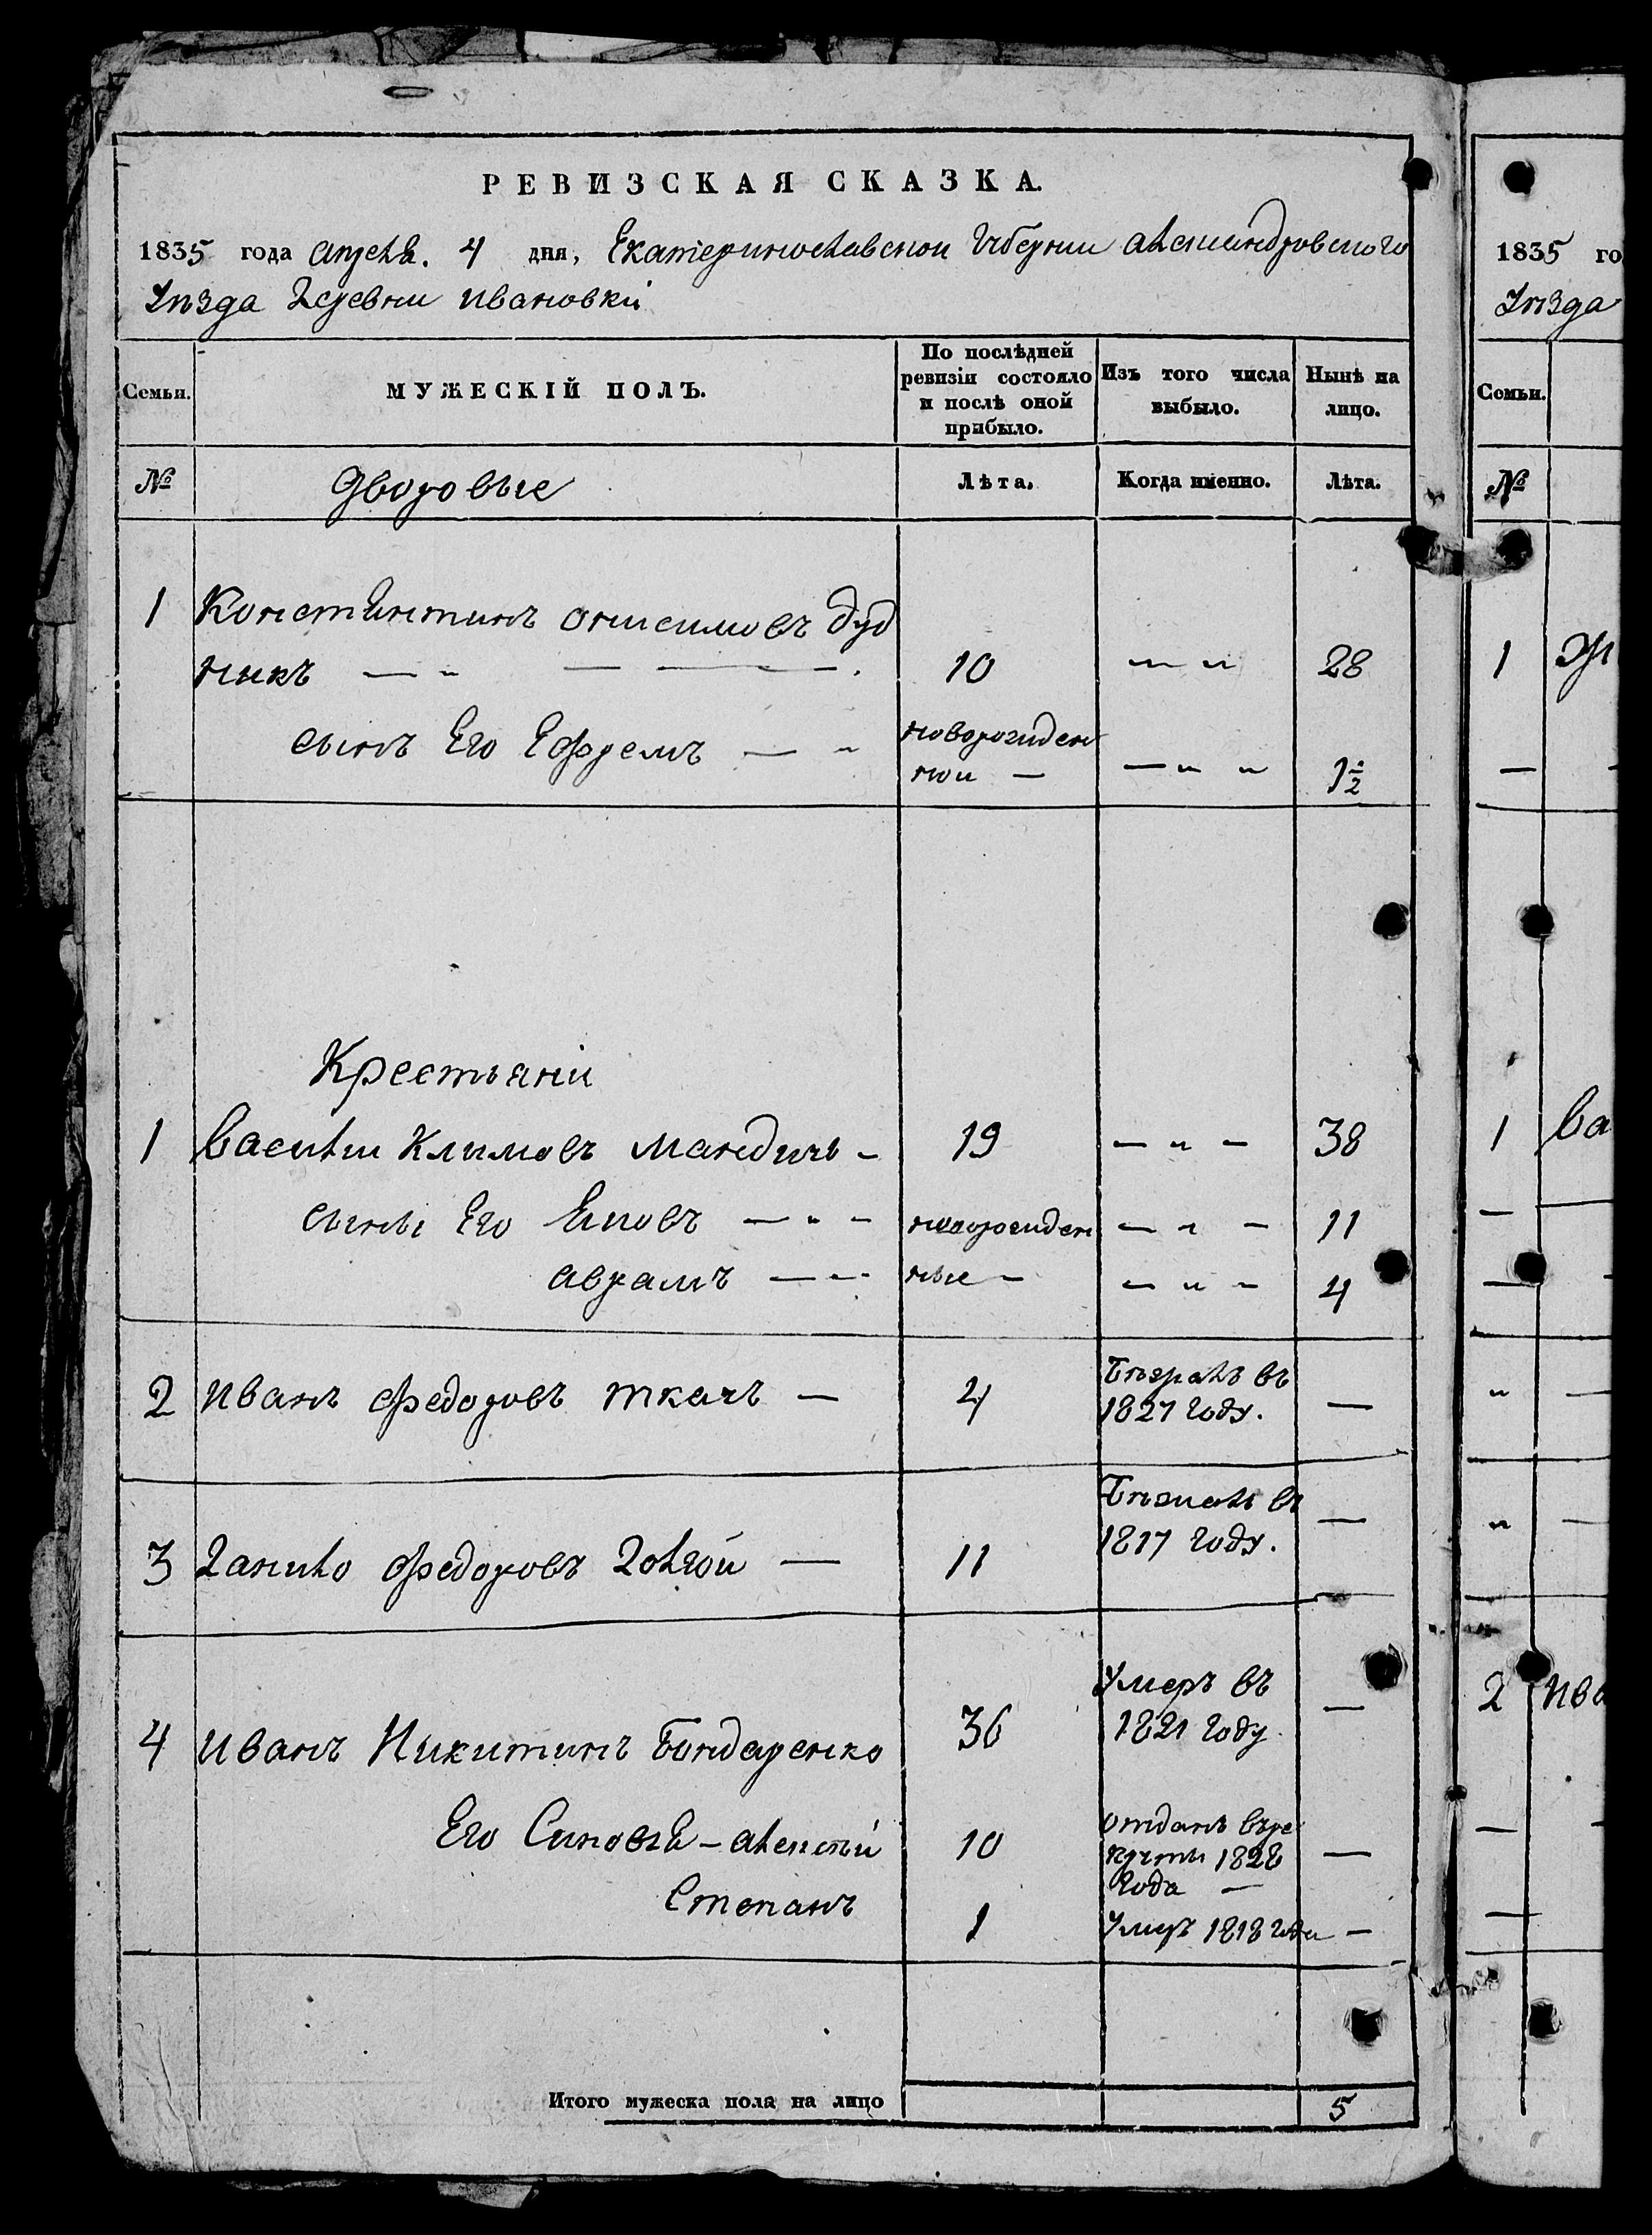 РЕВИЗСКАЯ СКАЗКА.
1835 года апреля. 4 дня, Екатеринославской Губернии александровского
Уѣзда Деревни Ивановки
Семьи. МУЖЕСКІЙ ПОЛЪ. По послѣдней ревизіи состояло и послѣ оной прибыло. Изъ того числа выбыло. Нынѣ на лицо.
№ Дворовые Лѣта. Когда именно. Лѣта.
1 Константинъ онисимовъ Дуд
никъ — — — — — 10 — — 28
сынъ Его Ефремъ — — новорожден
ной — — — — 1½
Крестьяни
1 Василии Климовъ мандичь — 19 — — — 38
сыны Его Яковъ — — — новорожден — — — 11
аврамъ — — — ные — — — — 4
2 Иванъ Федоровъ ткачъ — 4 Бѣжалъ въ
1827 году. —
3 Данило Федоровъ Долгой — 11 Бѣжалъ въ
1817 году. —
4 Иванъ Никитинъ Бондаренко 36 Умеръ въ
1821 году. —
Его Синовья — алексѣй 10 отданъ въре
круты 1828
года — —
Степанъ 1 Умеръ 1818 года —
Итого мужеска пола на лицо 5
1835 го
Уѣзда
Семьи.
№
1
1 Ва
2 Ива